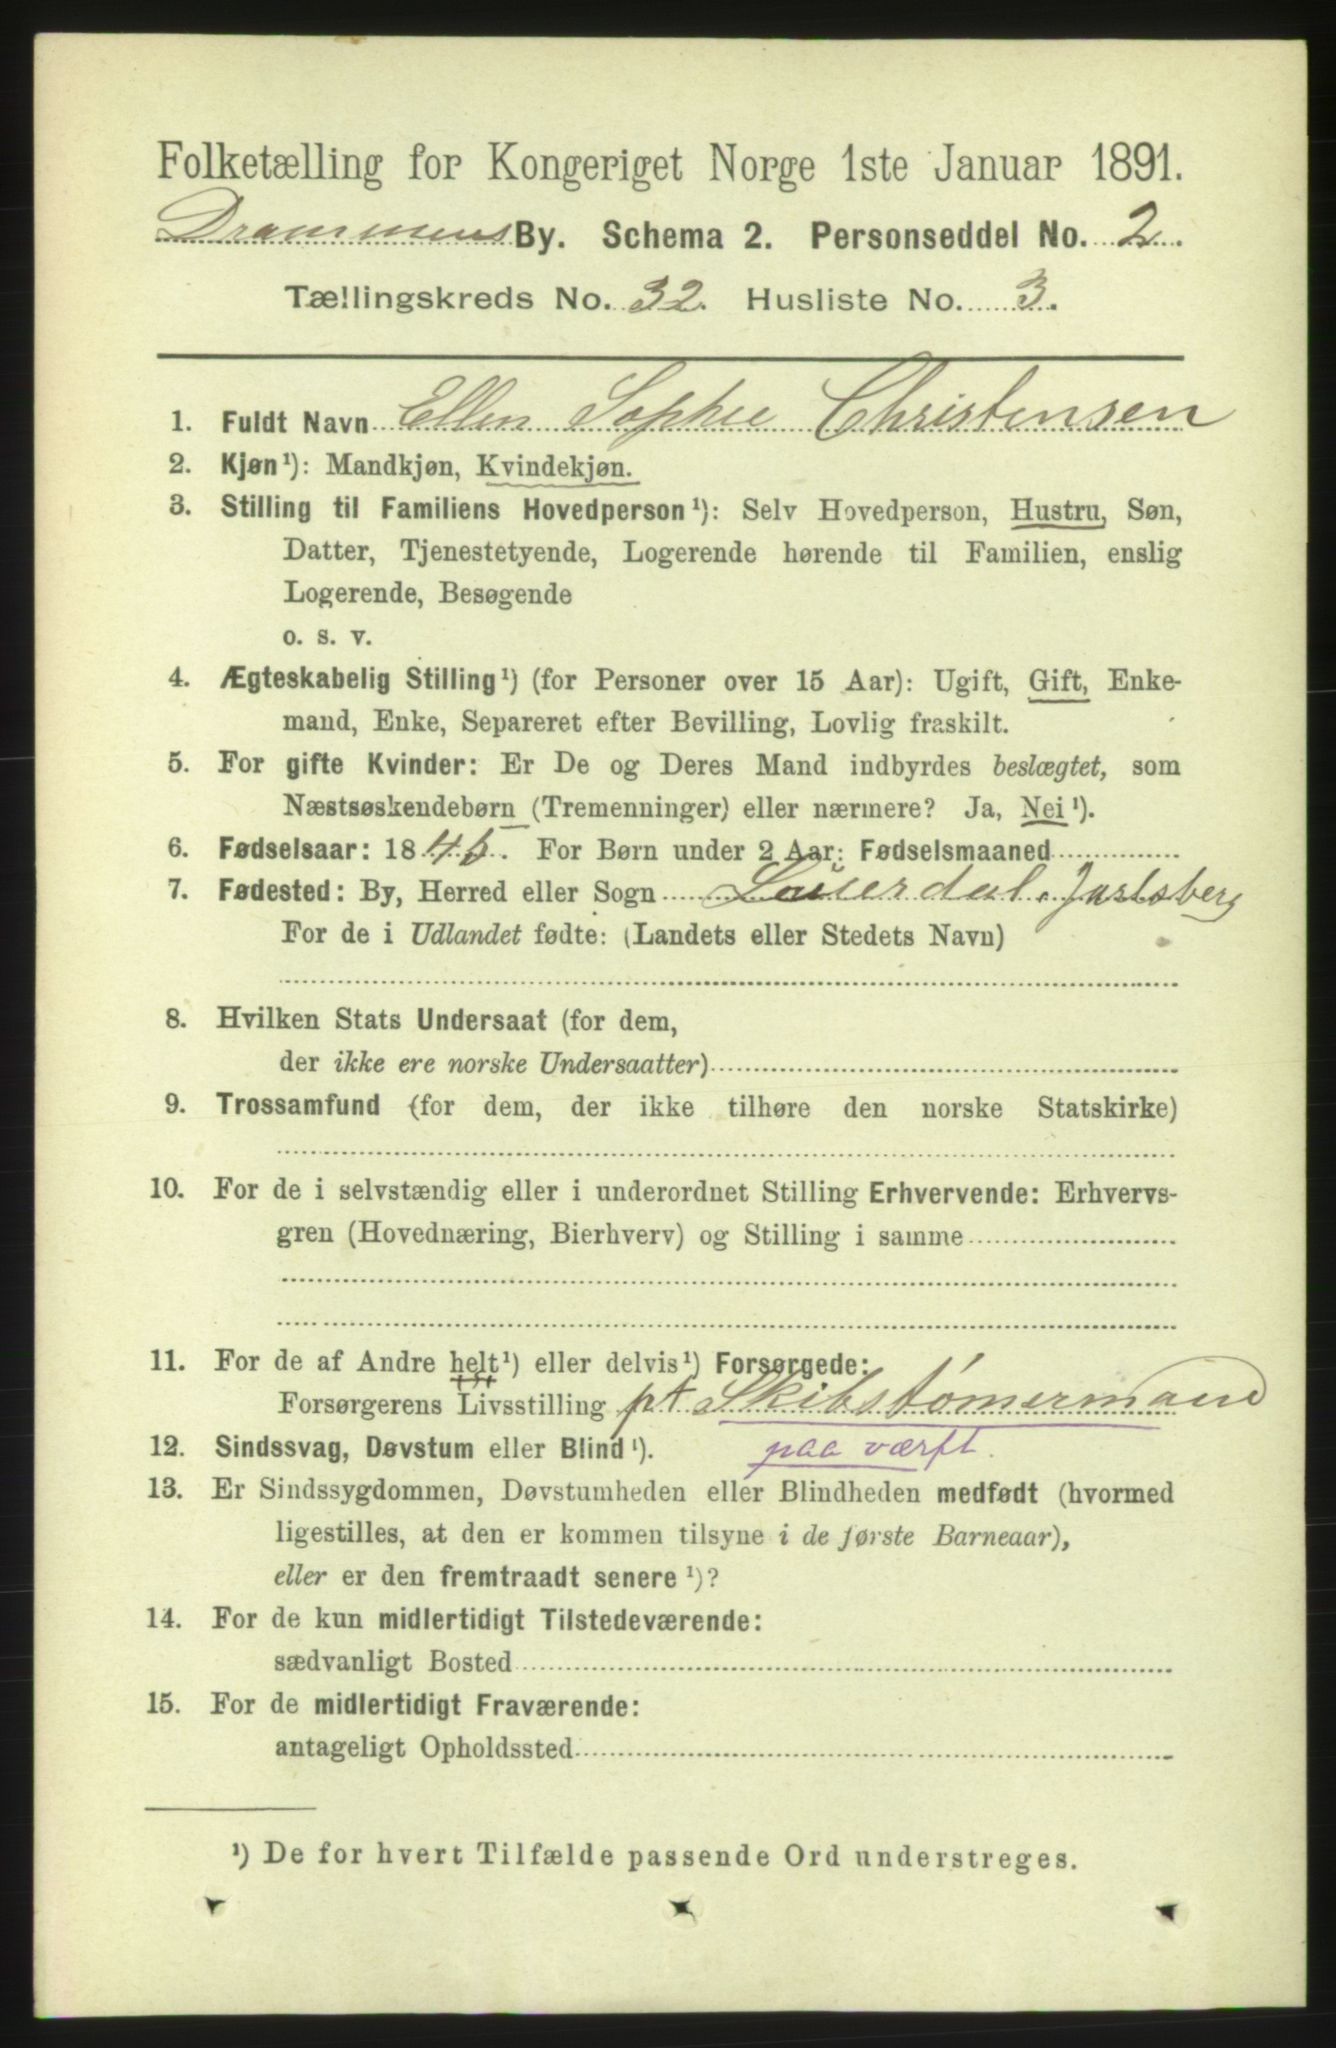 Folketælling for Kongeriget Norge 1ste Januar 1891.
Drammens By. Schema 2. Personseddel No. 2.
Tællingskreds No. 32. Husliste No. 3.
1. Fuldt Navn Ellen Sophie Christensen
2. Kjøn¹): Mandkjøn, Kvindekjøn.
3. Stilling til Familiens Hovedperson¹): Selv Hovedperson, Hustru, Søn,
Datter, Tjenestetyende, Logerende hørende til Familien, enslig
Logerende, Besøgende
o. s. v.
4. Ægteskabelig Stilling¹) (for Personer over 15 Aar): Ugift, Gift, Enke-
mand, Enke, Separeret efter Bevilling, Lovlig fraskilt.
5. For gifte Kvinder: Er De og Deres Mand indbyrdes beslægtet, som
Næstsøskendebørn (Tremenninger) eller nærmere? Ja, Nei¹).
6. Fødselsaar: 1845. For Børn under 2 Aar: Fødselsmaaned
7. Fødested: By, Herred eller Sogn Jarlsberg
For de i Udlandet fødte: (Landets eller Stedets Navn)
8. Hvilken Stats Undersaat (for dem,
der ikke ere norske Undersaatter)
9. Trossamfund (for dem, der ikke tilhøre den norske Statskirke)
10. For de i selvstændig eller i underordnet Stilling Erhvervende: Erhvervs-
gren (Hovednæring, Bierhverv) og Stilling i samme
11. For de af Andre helt¹) eller delvis¹) Forsørgede:
Forsørgerens Livsstilling pt Skibstømermand
12. Sindssvag, Døvstum eller Blind¹). paa værft.
13. Er Sindssygdommen, Døvstumheden eller Blindheden medfødt (hvormed
ligestilles, at den er kommen tilsyne i de første Barneaar),
eller er den fremtraadt senere¹)?
14. For de kun midlertidigt Tilstedeværende:
sædvanligt Bosted
15. For de midlertidigt Fraværende:
antageligt Opholdssted
¹) De for hvert Tilfælde passende Ord understreges.